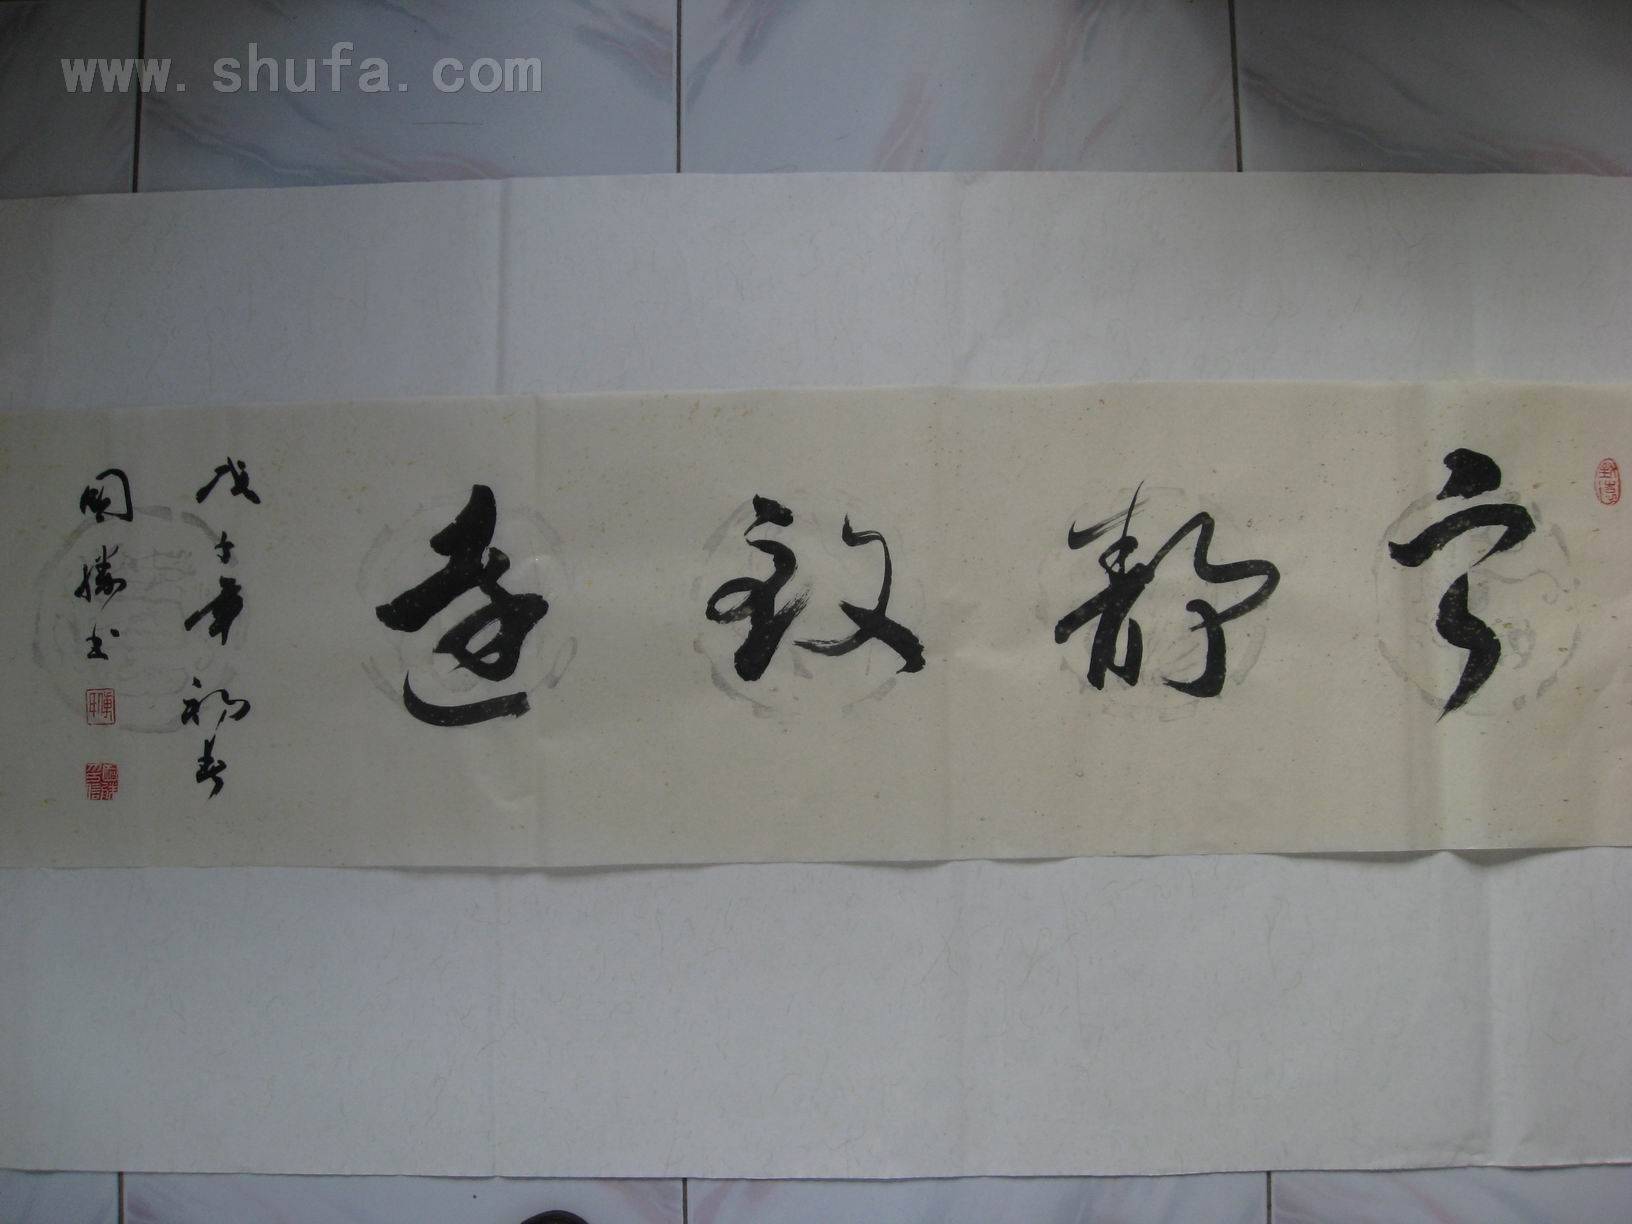 www.shufa.com
宁静致远
戊子年初春
国胜书